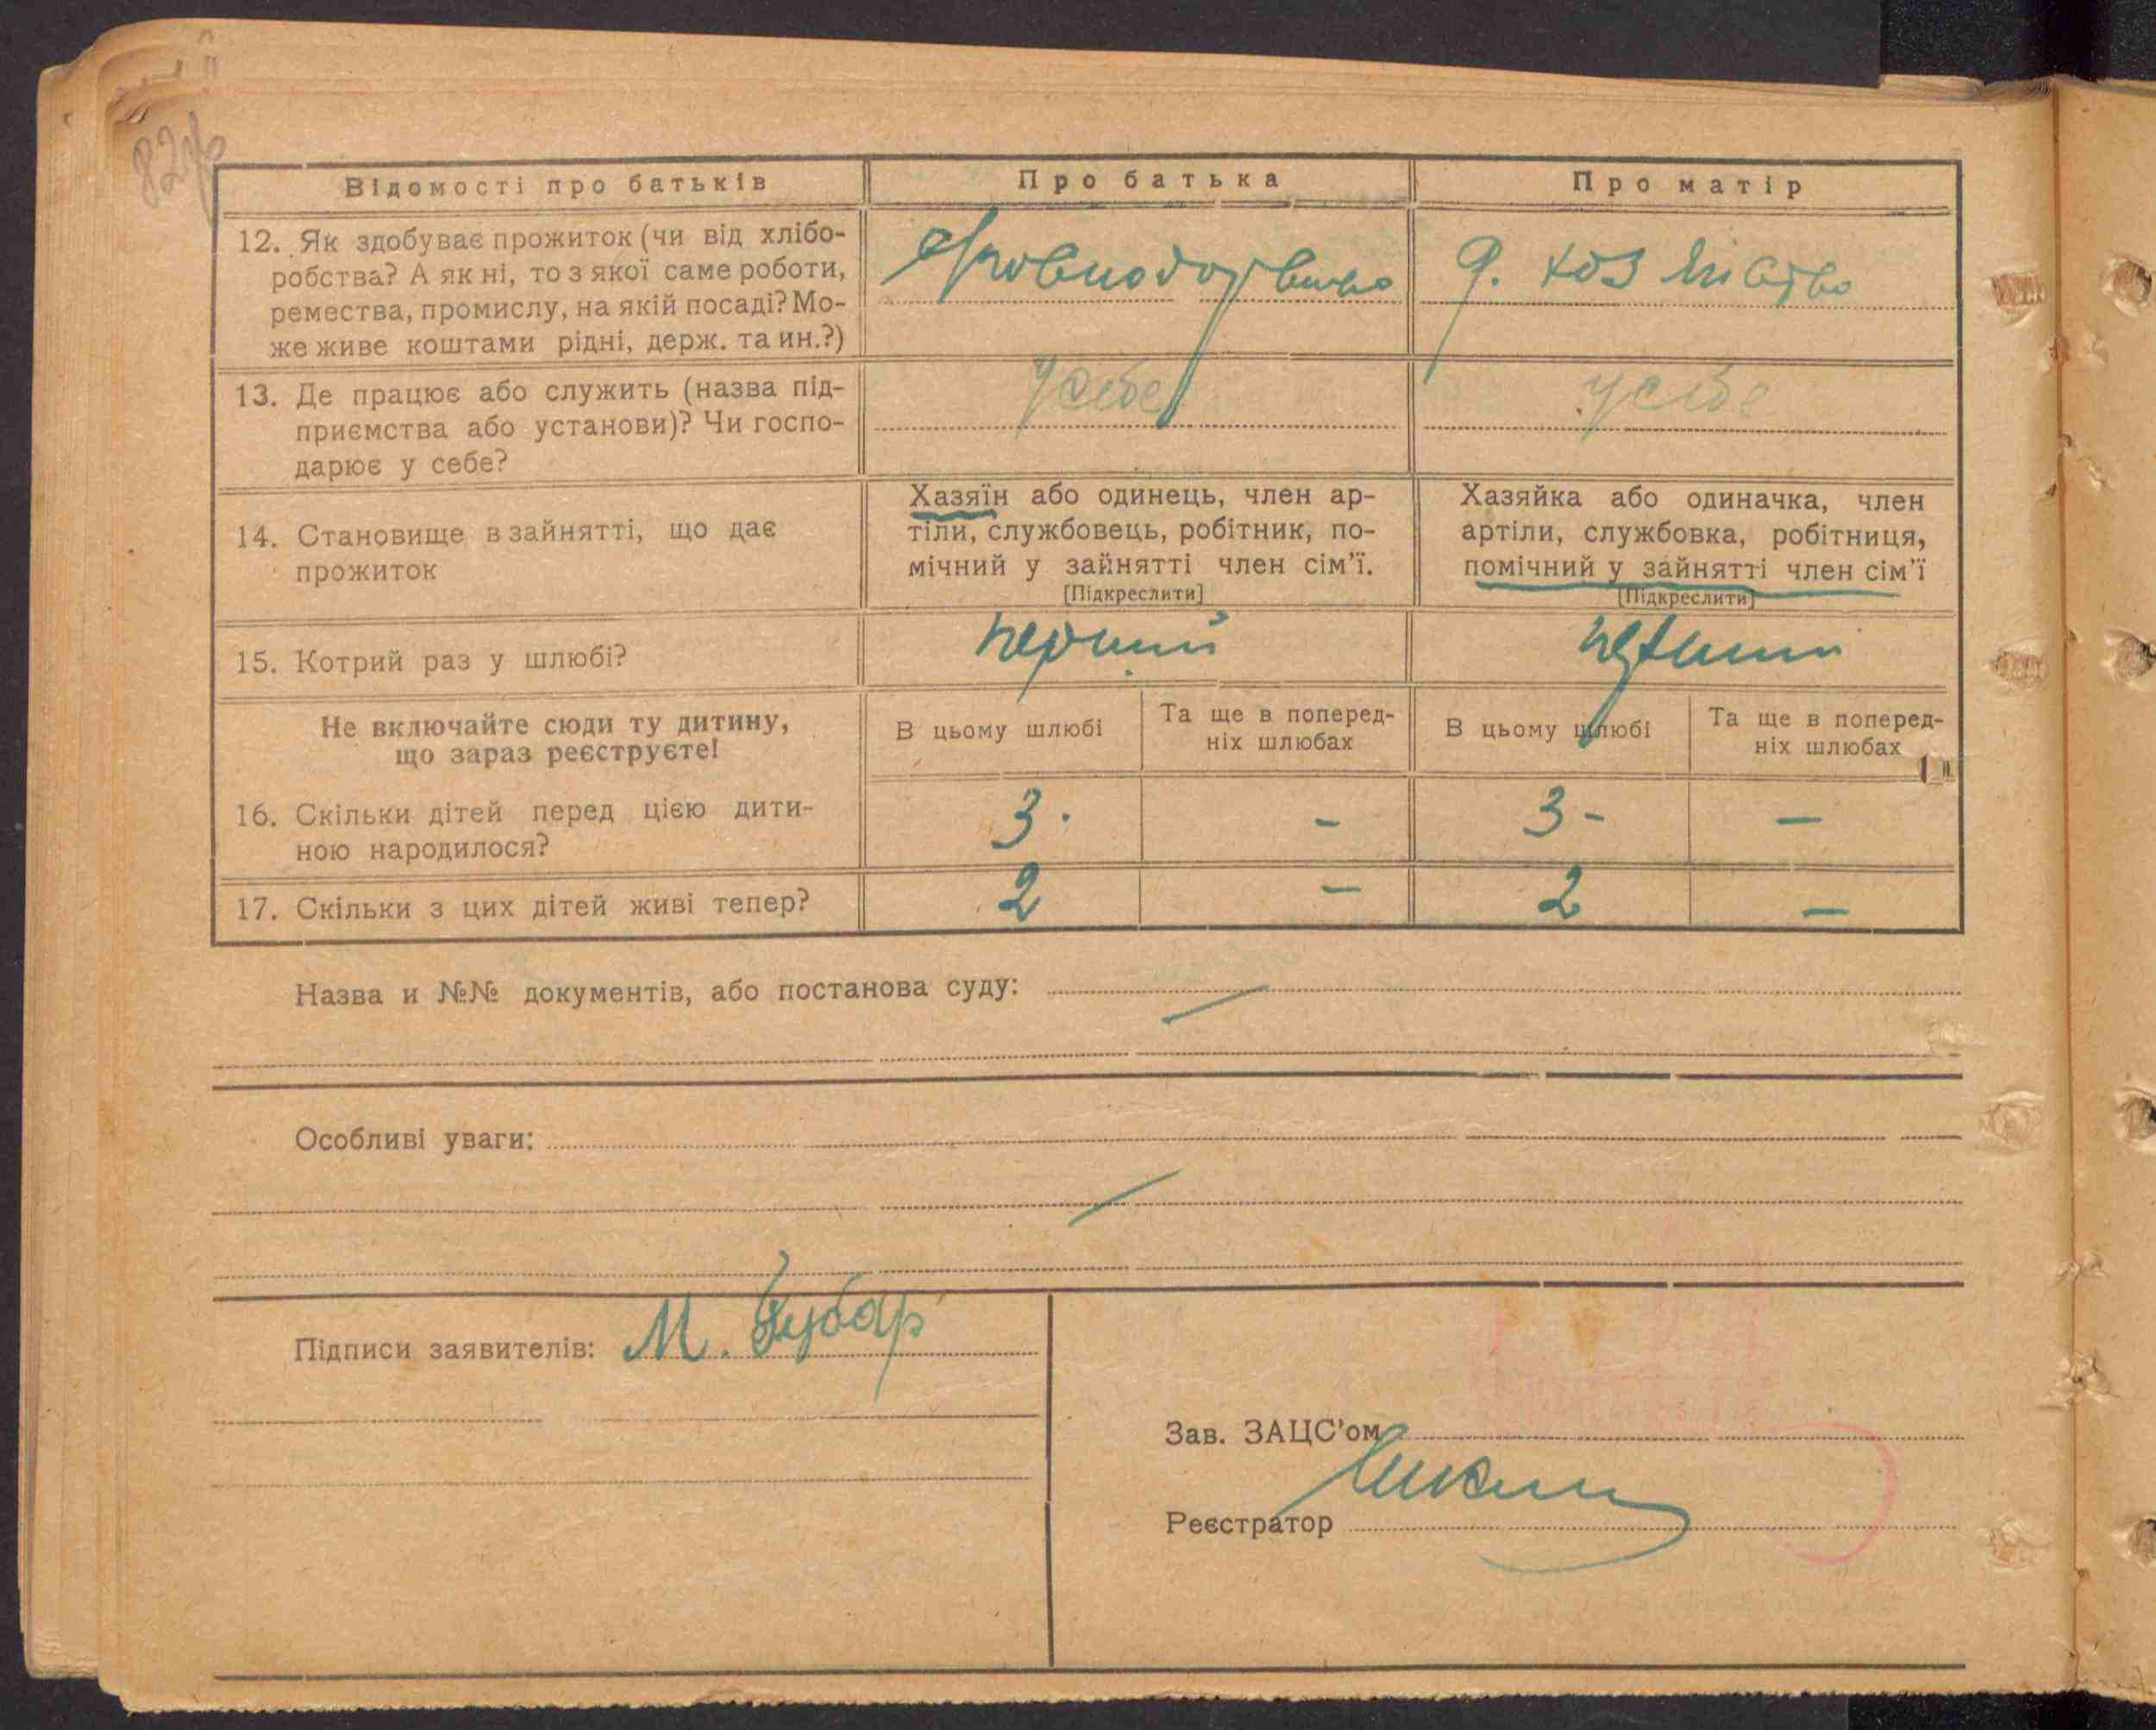 82
Відомості про батьків
Про батька
Про матір
12. Як здобуває прожиток (чи від хлібо-
робства? А як ні, то з якої саме роботи,
ремества, промислу, на якій посаді? Мо-
же живе коштами рідні, держ. та ин.?)
д. хозяйство
13. Де працює або служить (назва під-
приємства або установи)? Чи госпо-
дарює у себе?
у себе
у себе
14. Становище в зайнятті, що дає
прожиток
Хазяїн або одинець, член ар-
тіли, службовець, робітник, по-
мічний у зайнятті член сім'ї.
[Підкреслити]
Хазяйка або одиначка, член
артіли, службовка, робітниця,
помічний у зайнятті член сім'ї
[Підкреслити]
15. Котрий раз у шлюбі?
перший
перший
Не включайте сюди ту дитину,
що зараз реєструєте!
В цьому шлюбі
Та ще в поперед-
ніх шлюбах
В цьому шлюбі
Та ще в поперед-
ніх шлюбах
16. Скільки дітей перед цією дити-
ною народилося?
3. - 3- —
17. Скільки з цих дітей живі тепер?
2 — 2 —
Назва и №№ документів, або постанова суду:
Особливі уваги:
Підписи заявителів: М.
Зав. ЗАЦС'ом
Реєстратор